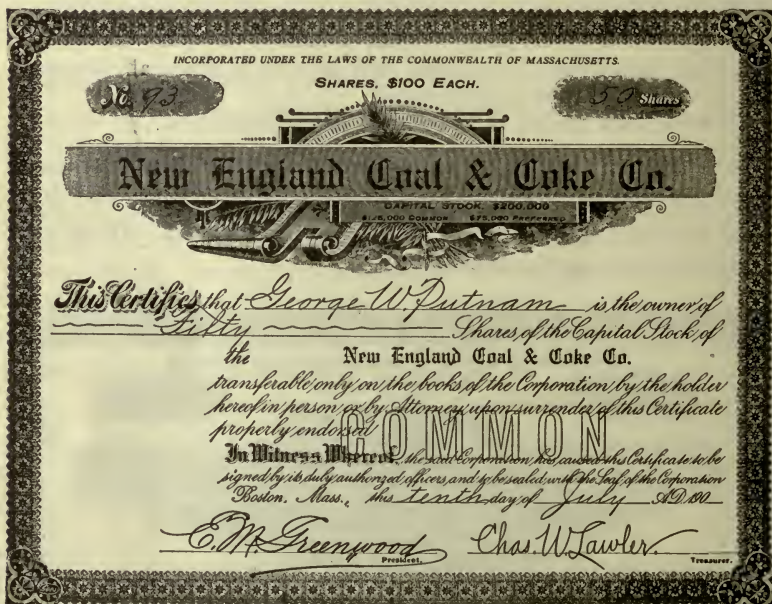 INCORPORATED UNDER THE LAWS OF THE COMMONWEALTH OF MASSACHUSETTS.
SHARES, $100 EACH.
No. 93
50 Shares
New England Coal & Coke Co.
CAPITAL STOCK. $200,000
$125,000 COMMON $75,000 PREFERRED
This Certifies that George W. Putnam is the owner of
Fifty Shares of the Capital Stock of
the New England Coal & Coke Co.
transferable only on the books of the Corporation by the holder
hereof in person or by Attorney upon surrender of this Certificate
properly endorsed
COMMON
In Witness Whereof, the said Corporation has caused this Certificate to be
signed by its duly authorized officers, and to be sealed with the Seal of the Corporation
Boston, Mass., this tenth day of July A.D. 190
E. M. Greenwood
President.
Chas. W. Lawler.
Treasurer.